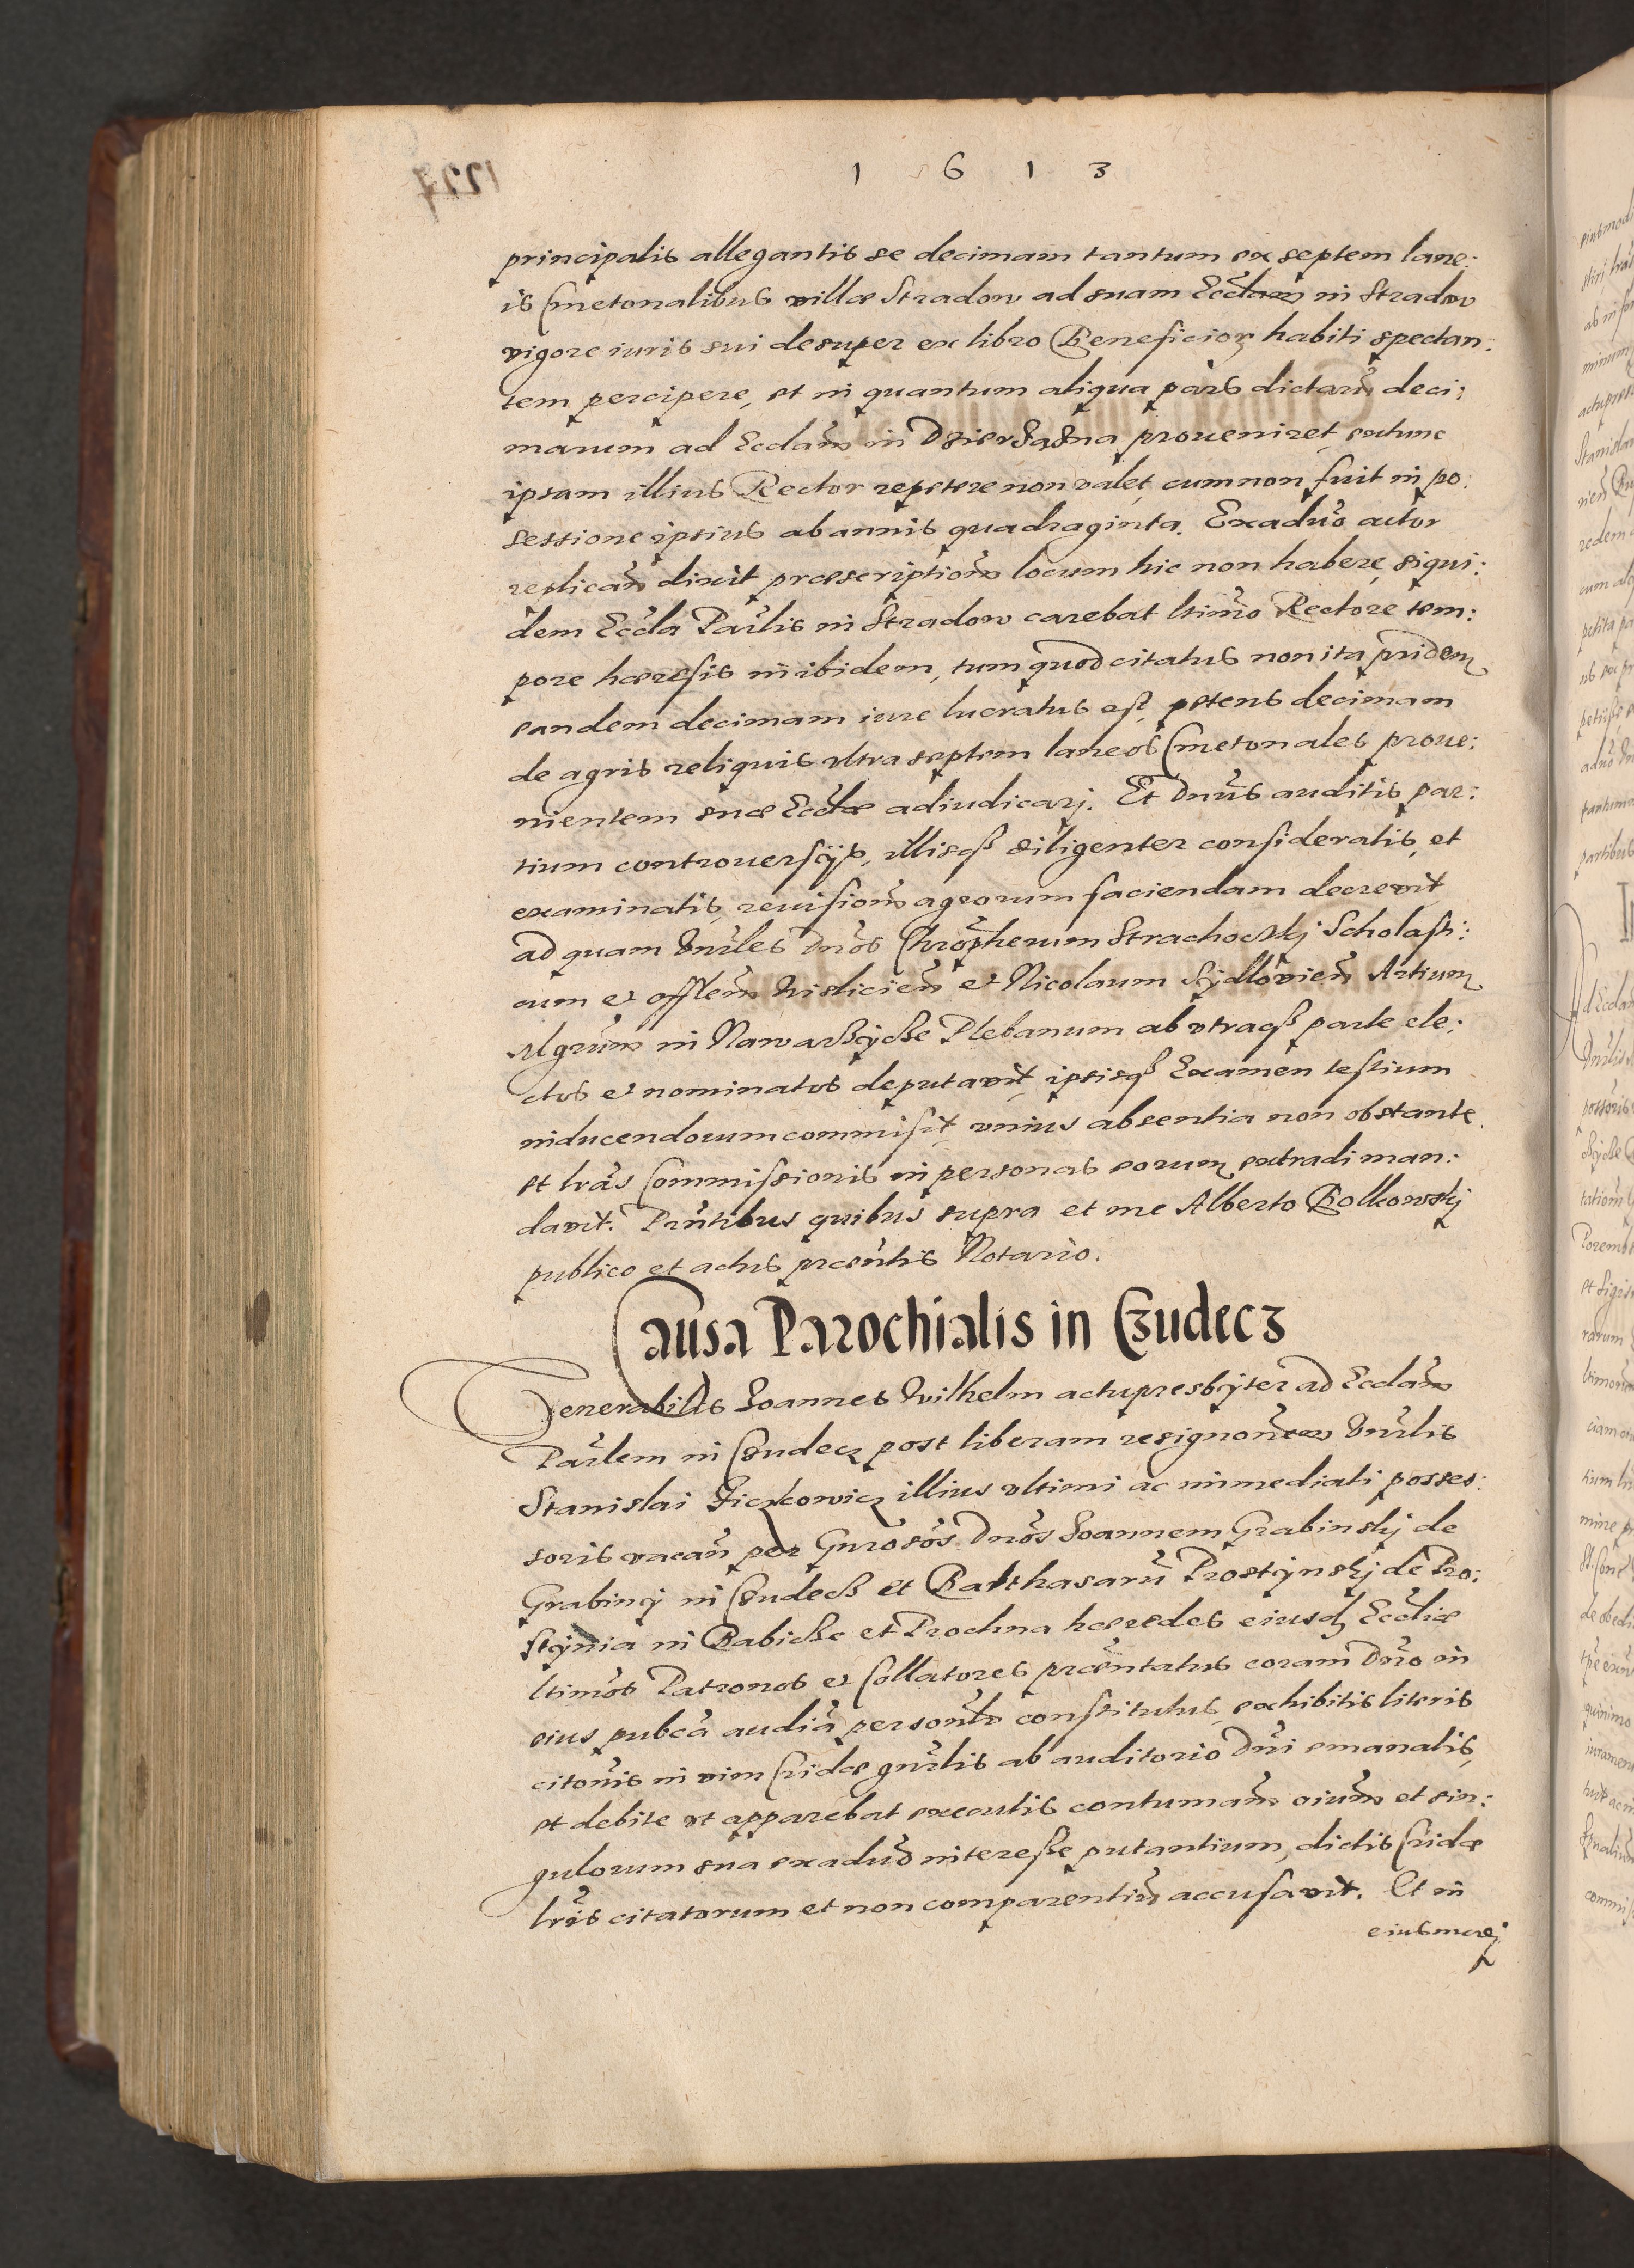 1613
principalis allegantis se decimam tantum ex septem lane:
is Cmetonalibus villæ Stradow ad suam Eccłam in Stradow
vigore iuris sui desuper ex libro Beneficior habiti spectan:
tem percipere, et in quantum aliqua pars dictarũ deci:
marum ad Eccłam in Dzierążna proueniret, extunc
ipsam illius Rector repetere non valet, cum non fuit in po:
sessione ipsius ab annis quadraginta. Exaduo actor
replicañ dixit præscriptioñ locum hic non habere, siqui:
dem Eccła Parlis in Stradow carebat ltimo Rectore tem:
pore hæresis inibidem, tum quod citatus non ita pridem
eandem decimam iure lucratus est, petens decimam
de agris reliquis vltra septem laneos Cmetonales proue:
nientem suæ Eccłæ adiudicarj. Et Dnus auditis par:
tium controuersijs, illisqß diligenter consideratis, et
examinatis, reuisioñ agrorum faciendam decrevit
ad quam Vnrles Dnos Chropherum Strachockj Scholasti:
cum et offlem Visliciẽn et Nicolaum Sydlovien Artium
Mgrum in Nawarzycze Plebanum ab vtraqß parte ele:
ctos et nominatos deputavit, ipsisqß Examen testium
inducendorum commisit, vnius absentia non obstante.
et lras Commissionis in personas eorum extradi man:
davit. Pñtibus quibus supra et me Alberto Bolkowskj
publico et actus præntis Notario.
Causa Parochialis in Czudecz
Venerabilis Ioannes Wilhelm actupresbyter ad Eccłam
Parlem in Czudecz post liberam resignonem Vnrlis
Stanislai Ficzkowicz illius vltimi ac immediati posses:
soris vacañ per Gnrosos Dnos Ioannem Grabinskj de
Grabiny in Czudecz et Balthasarũ Prostynskj de Pro:
stynia in Babicze et Prochna hæredes eiusd Eccliæ
ltimos Patronos et Collatores præntatus coram Dno in
eius pubca audia personlr constitutus, exhibitis literis
citonis in vim Cridæ gnrlis ab auditorio Dni emanatis,
et debite vt apparebat executis contumam oium et sin:
gulorum sua exaduo interesse putantium, dictis Cridæ
lris citatorum et non comparentiũ accusavit. Et in
eiusmodj